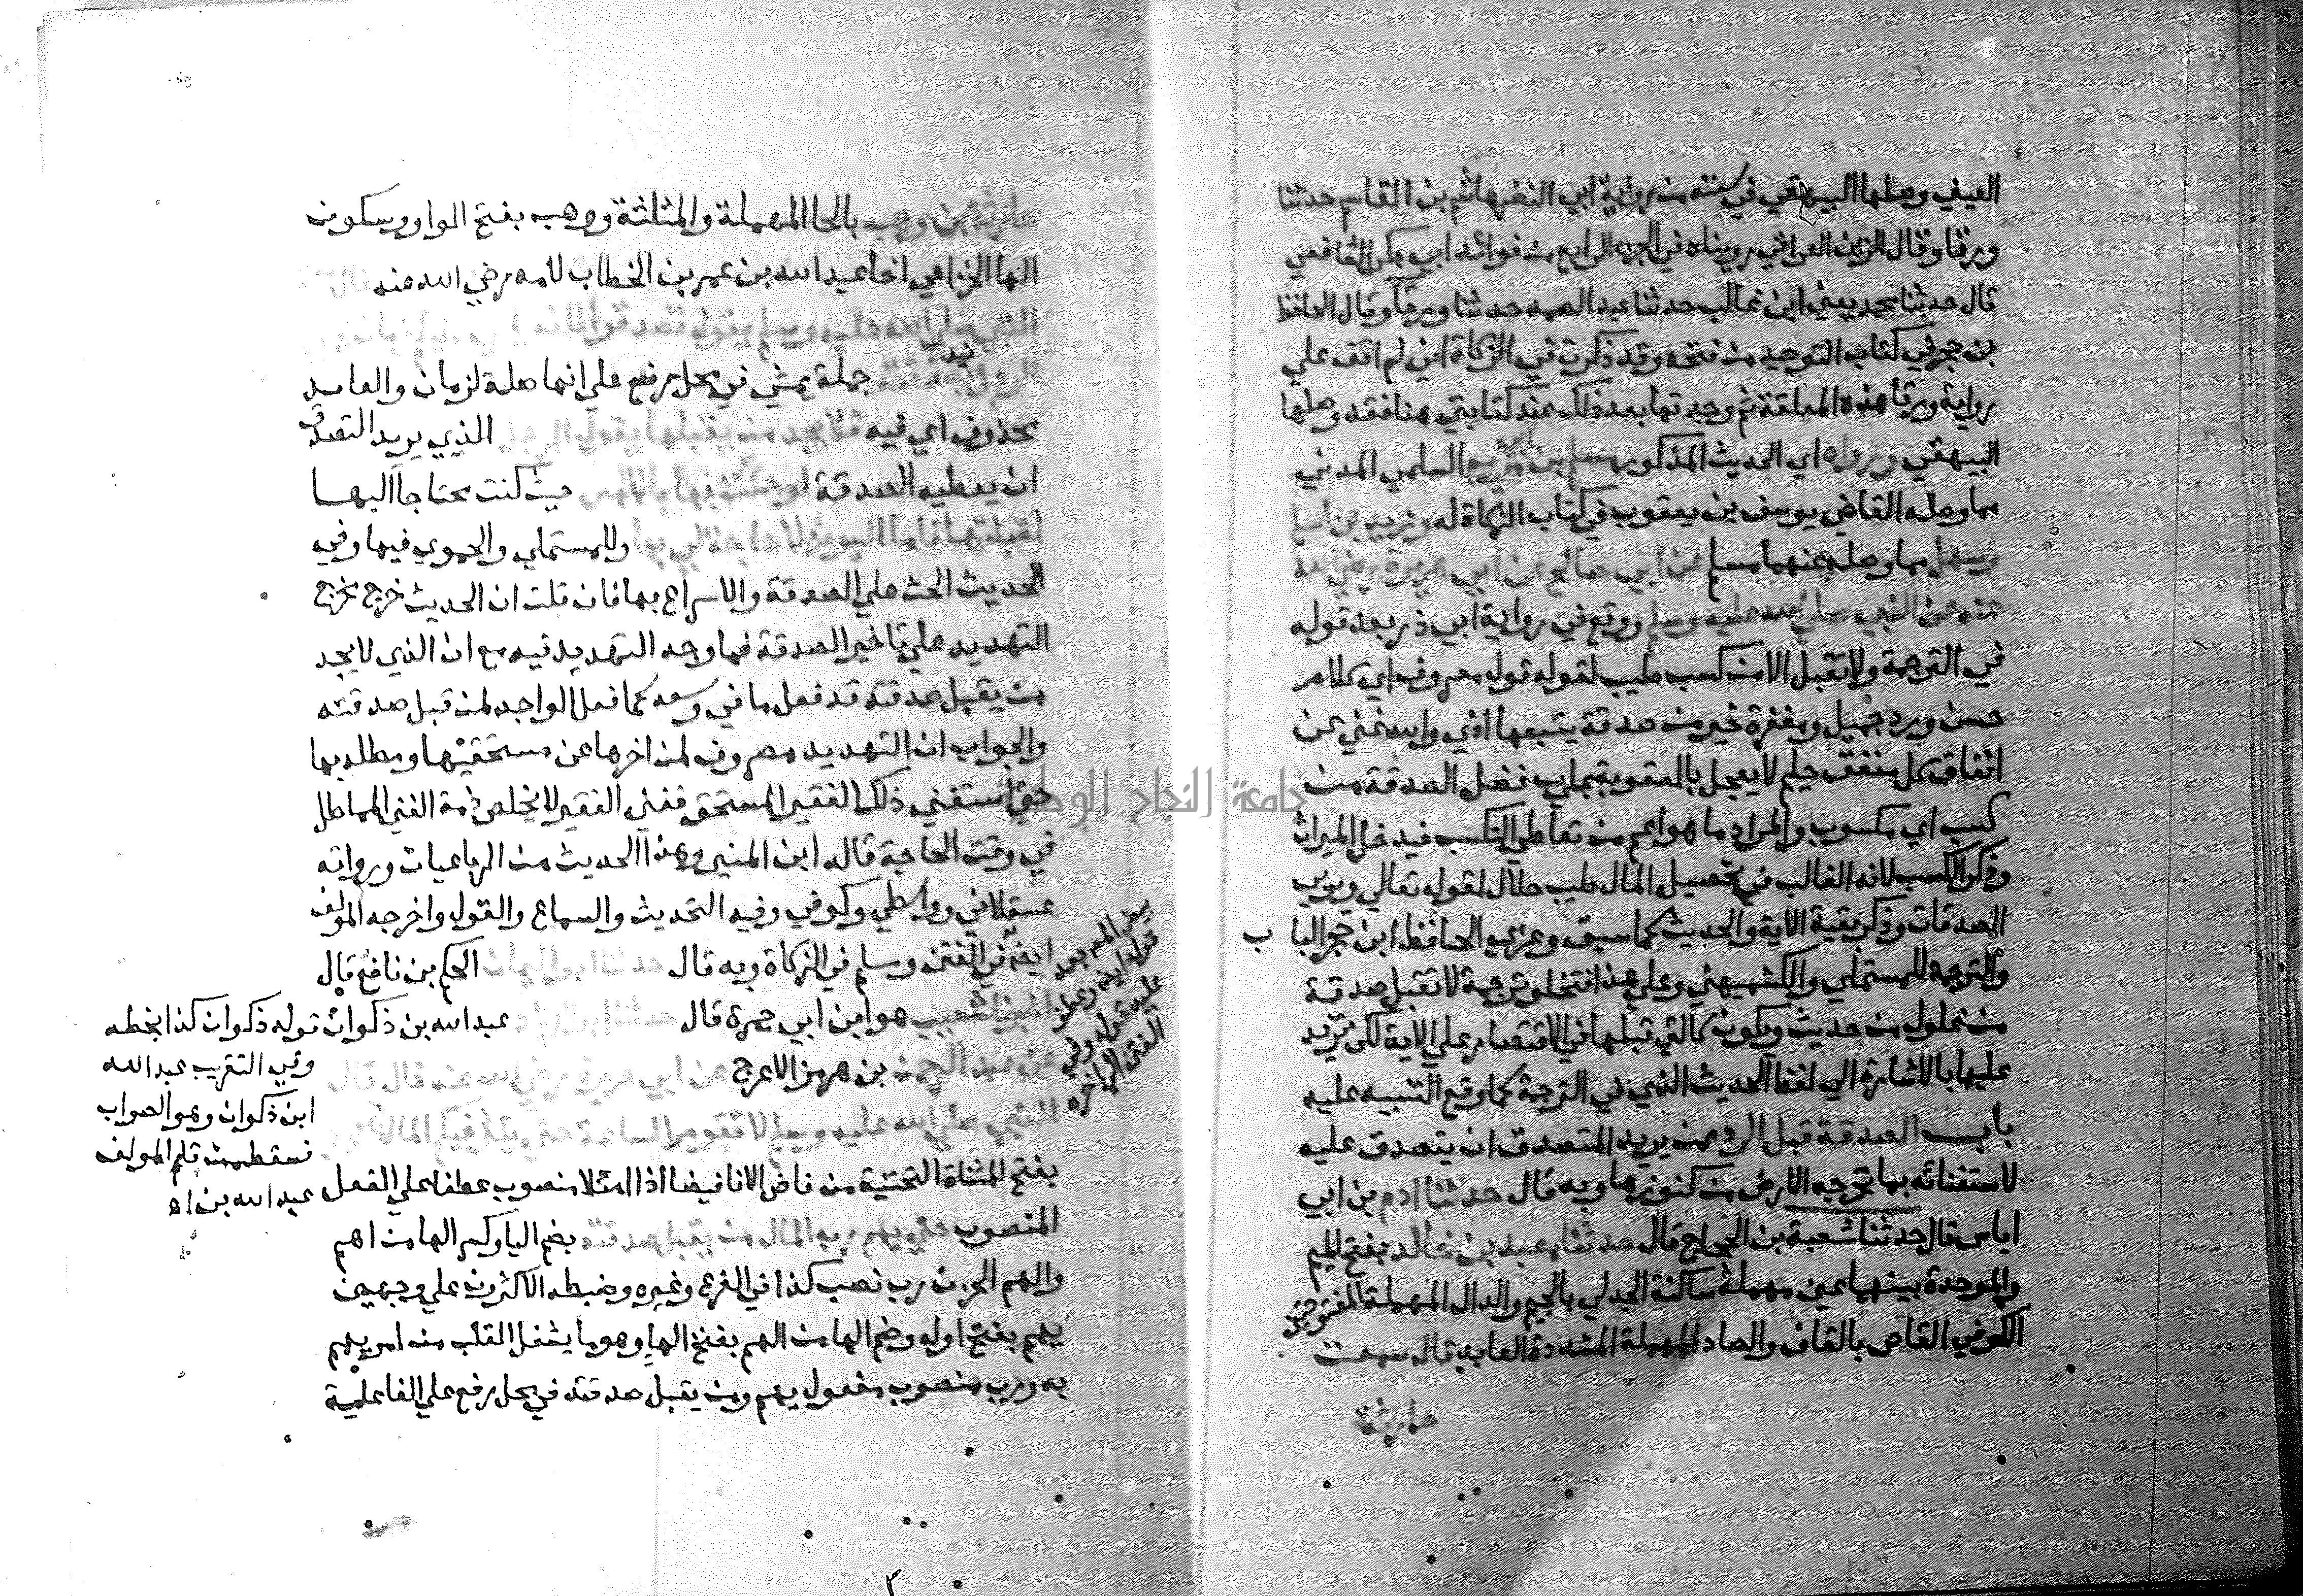 الضيف ووصلها البيهقي في سننه من رواية ابي النضر هاشم بن القاسم حدثنا
ورقا وقال الزين العراقي رويناه في الجزء الرابع من فوائد ابي بكر الشافعي
قال حدثنا محمد يعني ابن غالب حدثنا عبد الصمد حدثنا ورقا وقال الحافظ
بن حجر في كتاب التوحيد من فتحه وقد ذكرت في الزكاة اني لم اقف علي
رواية ورقا هذه المعلقة ثم وجدتها بعد ذلك عند كتابتي هنا فقد وصلها
البيهقي ورواه اي الحديث المذكور مسلم بن ابي مريم السلمي المدني
مما وصله القاضي يوسف بن يعقوب في كتاب الزكاة له وزيد بن اسلم
وسهل مما وصله عنهما مسلم عن ابي صالح عن ابي هريرة رضي الله
عنه عن النبي صلي الله عليه وسلم ووقع في رواية ابي ذر بعد قوله
في الترجمة ولا تقبل الا من كسب طيب لقوله قول معروف اي كلام
حسن ورد جميل ومغفرة خير من صدقة يتبعها اذي والله غني عن
انفاق كل منفق حليم لا يعجل بالعقوبة باب فضل الصدقة من
كسب اي مكسوب والمراد ما هو اعم من تعاطي التكسب فيدخل الميراث
وذكر الكسب لانه الغالب في تحصيل المال طيب حلال لقوله تعالي ويربي
الصدقات وذكر بقية الاية والحديث كما سبق وعزي الحافظ ابن حجر الباب
والترجمة للمستملي والكشميهني وعلي هذا فتخلو ترجمة لا تقبل صدقة
من غلول من حديث وتكون كالتي قبلها في الاقتصار علي الاية لكن تزيد
عليها بالاشارة الي لفظ الحديث الذي في الترجمة كما وقع التنبيه عليه
باب الصدقة قبل الرد ممن يريد المتصدق ان يتصدق عليه
لاستغنائه بما تخرجه الارض من كنوزها وبه قال حدثنا ادم بن ابي
اياس قال حدثنا شعبة بن الحجاج قال حدثنا معبد بن خالد بفتح الميم
والموحدة بينهما عين مهملة ساكنة الجدلي بالجيم والدال المهملة المفتوحتين
الكوفي القاص بالقاف والصاد المهملة المشددة العابد قال سمعت
حارثة
حارثة بن وهب بالحا المهملة والمثلثة ووهب بفتح الواو وسكون
الها الخزاعي اخا عبيد الله بن عمر بن الخطاب لامه رضي الله عنه
النبي صلي الله عليه وسلم يقول تصدقوا فانه
الرجل بصدقته جملة يمشي في محل رفع علي انها صلة لزمان والعايد
فيه
محذوف اي فيه فلا يجد من يقبلها يقول الرجل الذي يريد التصدق
ان يعطيه الصدقة لو جئت بها بالامس حيث كنت محتاجا اليها
لقبلتها فاما اليوم فلا حاجة لي بها وللمستملي والحموي فيها وفي
الحديث الحث علي الصدقة والاسراع بها فان قلت ان الحديث خرج مخرج
التهديد علي تاخير الصدقة فما وجه التهديد فيه مع ان الذي لا يجد
من يقبل صدقته قد فعل ما في وسعه كما فعل الواجد لمن قبل صدقته
والجواب ان التهديد مصروف لمن اخرها عن مستحقيها ومطله بها
حتي استغني ذلك الفقير المستحق فغني الفقير لا يخلص ذمة الغني المماطل
في وقت الحاجة قاله ابن المنير وهذا الحديث من الرباعيات ورواته
عسقلاني وواسطي وكوفي وفيه التحديث والسماع والقول واخرجه المولف
ايضا في الفتن ومسلم في الزكاة وبه قال حدثنا ابو اليمان الحكم بن نافع قال
اخبرنا شعيب هو ابن ابي حمزة قال حدثنا ابو الزناد عبد الله بن ذكوان
عن عبد الرحمن بن هرمز الاعرج عن ابي هريرة رضي الله عنه قال قال
النبي صلي الله عليه وسلم لا تقوم الساعة حتي يكثر فيكم المال
بفتح المثناة التحتية من فاض الانا فيضا اذا امتلا منصوب عطفا علي الفعل
المنصوب حتي يهم رب المال من يقبل صدقته بضم اليا وكسر الها من اهم
والهم الحزن رب نصب كذا في الفرع وغيره وضبطه الاكثرون علي وجهين
يهم بفتح اوله وضم الها من الهم بفتح الها وهو ما يشغل القلب من امر يهم
به ورب منصوب مفعول يهم ومن يقبل صدقته في محل رفع علي الفاعلية
قوله ذكوان كذا بخطه
وفي التقريب عبد الله
ابن ذكوان وهو الصواب
فسقط من قلم المولف
عبد الله بن اه
جامعة النجاح الوط